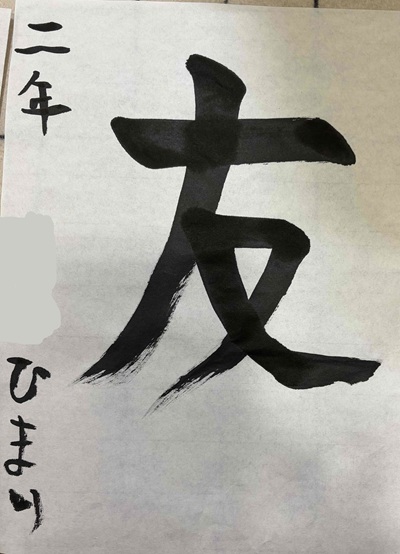 友
二年
ひまり